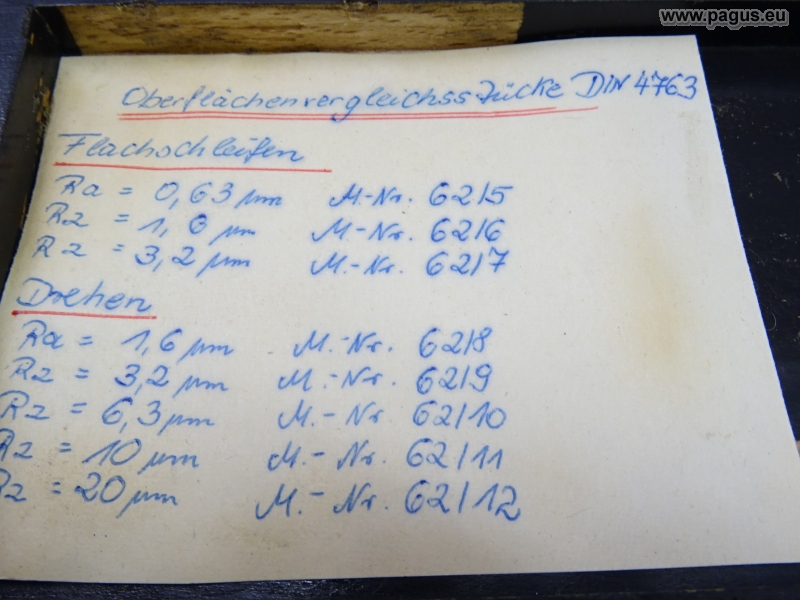 www.pagus.eu
Oberflächenvergleichsstücke DIN 4763
Flachschleifen
Ra = 0,63 µm M.-Nr. 62/5
Rz = 1,6 µm M-Nr. 62/6
Rz = 3,2 µm M.-Nr. 62/7
Drehen
Ra = 1,6 µm M.-Nr. 62/8
Rz = 3,2 µm M.-Nr. 62/9
Rz = 6,3 µm M.-Nr. 62/10
Rz = 10 µm M.-Nr. 62/11
Rz = 20 µm M.-Nr. 62/12